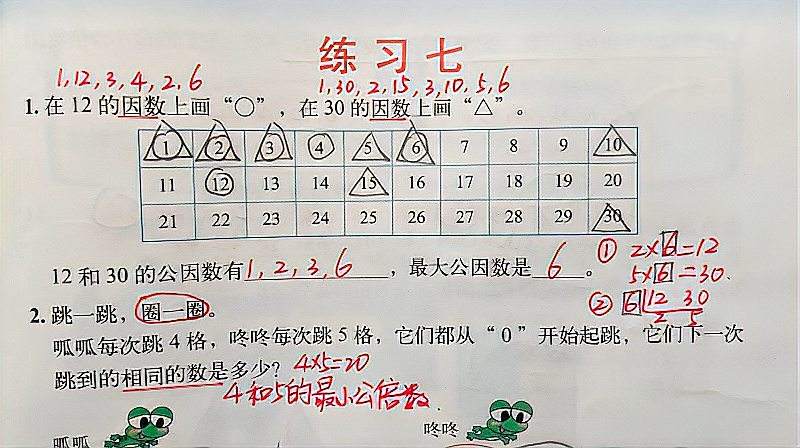 练习七
1,12,3,4,2,6
1,30,2,15,3,10,5,6
1.在12的因数上画“○”，在30的因数上画“△”。
1 2 3 4 5 6 7 8 9 10
11 12 13 14 15 16 17 18 19 20
21 22 23 24 25 26 27 28 29 30
12和30的公因数有1,2,3,6，最大公因数是6。
① 2×6=12
5×6=30.
② 6 12 30
2 5
2.跳一跳，圈一圈。
呱呱每次跳4格，咚咚每次跳5格，它们都从“0”开始起跳，它们下一次
跳到的相同的数是多少？4×5=20
4和5的最小公倍数.
呱呱
咚咚